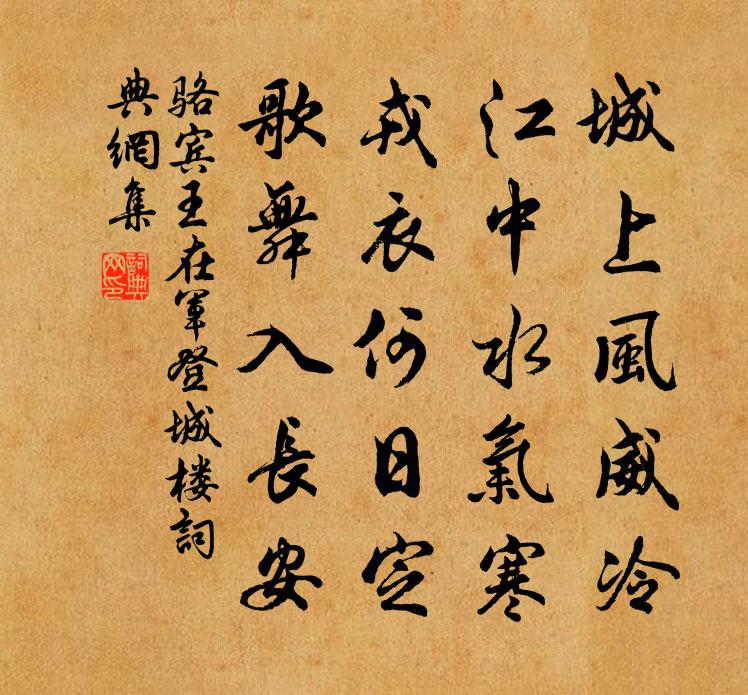 城上風威冷
江中水氣寒
戎衣何日定
歌舞入長安
骆宾王在軍登城楼詞
典網集
詞典網印